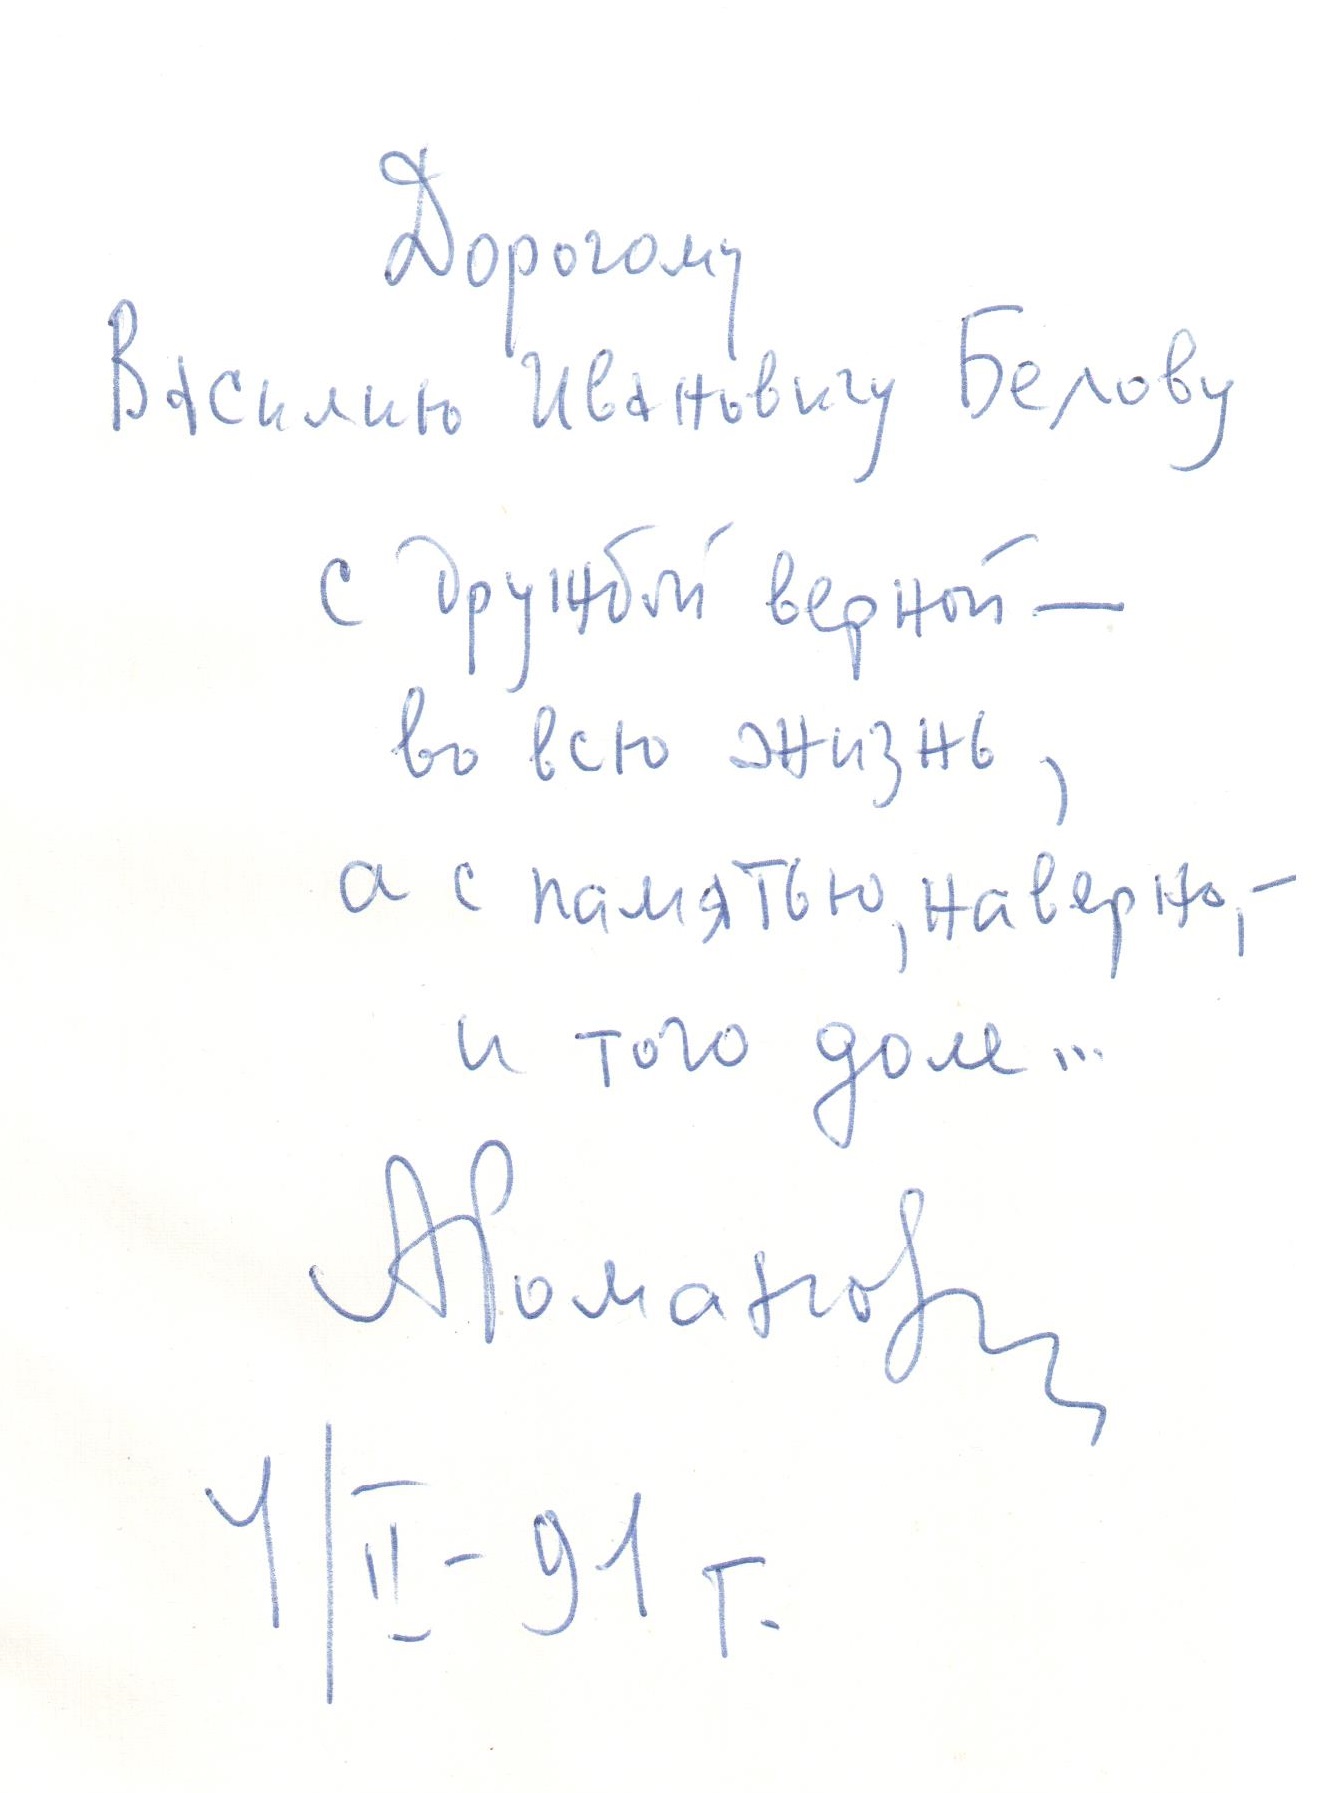 Дорогому
Василию Ивановичу Белову
с дружбой верной —
во всю жизнь,
а с памятью, наверно, –
и того доле...
АРоманов
4/II - 91 г.